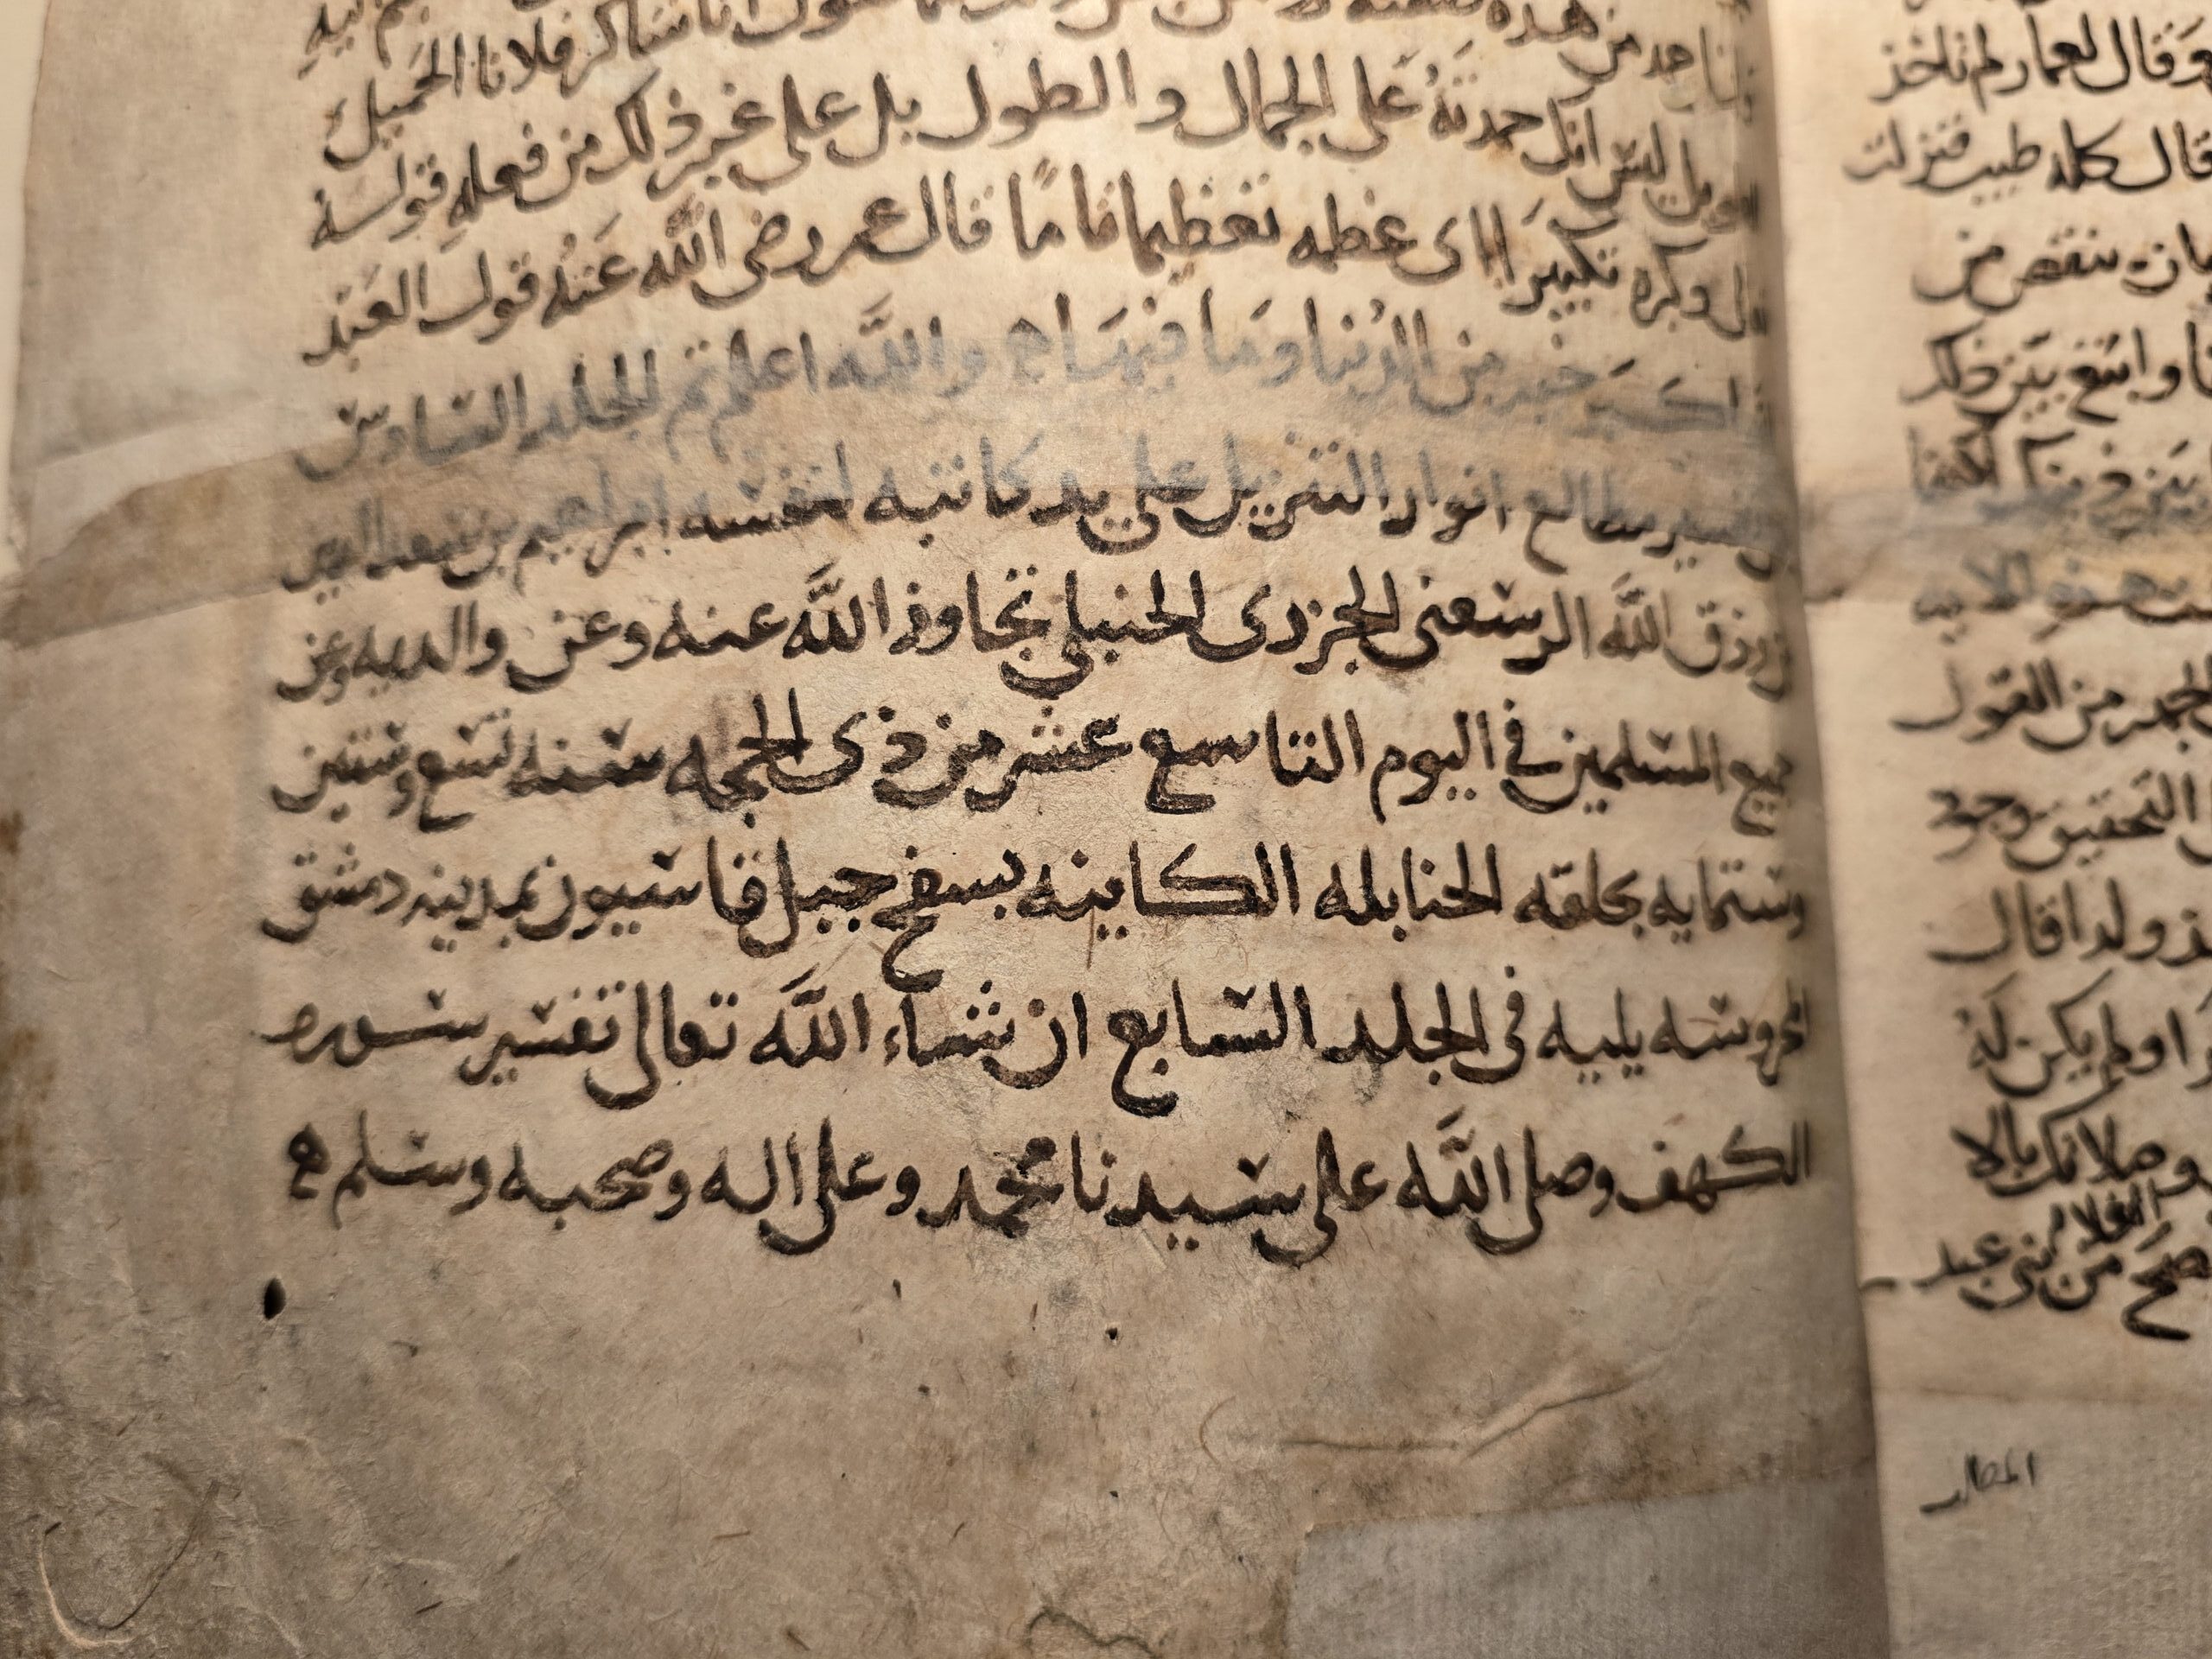 انا شاكر فلانا الجميل
ليس انك حمدته على الجمال والطول بل على غير ذلك من فعله قوله
وكبره تكبيرا اى عظمه تعظيما تاما قال عمر رضى الله عنه قول العبد
الله اكبر خير من الدنيا وما فيها ه والله اعلم تم المجلد السادس
من تفسير مطالع انوار التنزيل على يد كاتبه لنفسه ابراهيم بن
بن رزق الله الرسعنى الجزرى الحنبلى تجاوز الله عنه وعن والديه وعن
جميع المسلمين فى اليوم التاسع عشر من ذى الحجه سنه تسع وستين
وستمايه بحلقه الحنابله الكاينه بسفح جبل قاسيون بمدينه دمشق
المحروسه يليه فى المجلد السابع ان شاء الله تعالى تفسير سوره
الكهف وصلى الله على سيدنا محمد وعلى اله وصحبه وسلم ه
وقال لعمار لم تاخذ
قال كله طيب فنزلت
ينقص من
وابتغ بين ذلك
هذه الايه
الحمد من القول
التحقيق وجود
ولدا قال
او لم يكن له
وصلاتك بالا
صح من بنى عبد